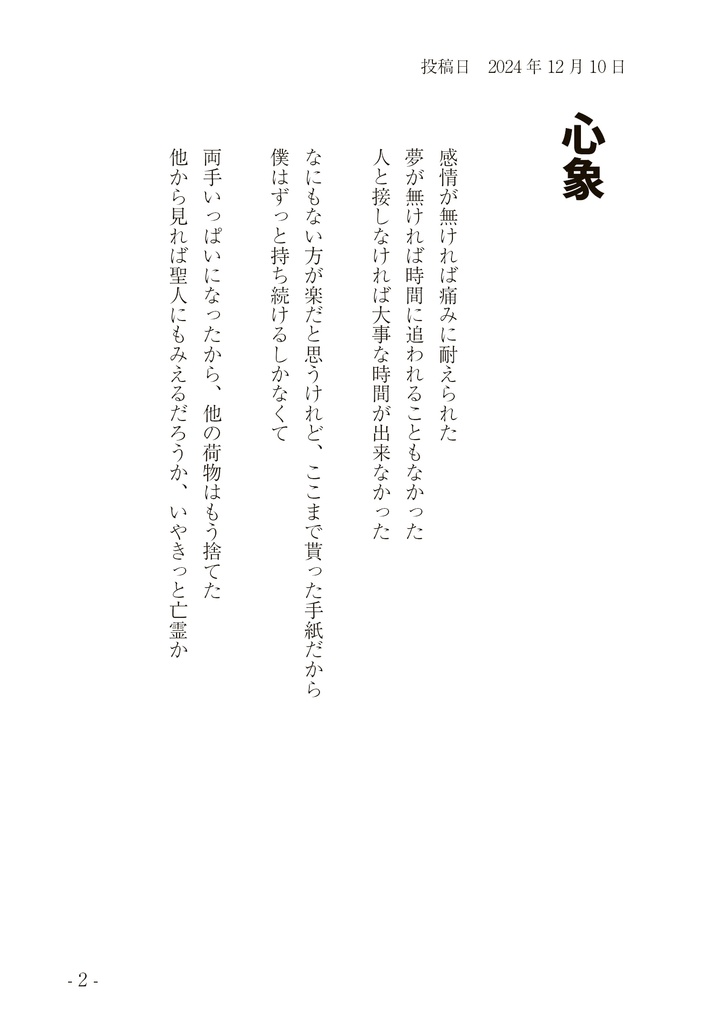 投稿日　2024 年 12 月 10 日
心象
感情が無ければ痛みに耐えられた
夢が無ければ時間に追われることもなかった
人と接しなければ大事な時間が出来なかった
なにもない方が楽だと思うけれど、ここまで貰った手紙だから
僕はずっと持ち続けるしかなくて
両手いっぱいになったから、他の荷物はもう捨てた
他から見れば聖人にもみえるだろうか、いやきっと亡霊か
- 2 -